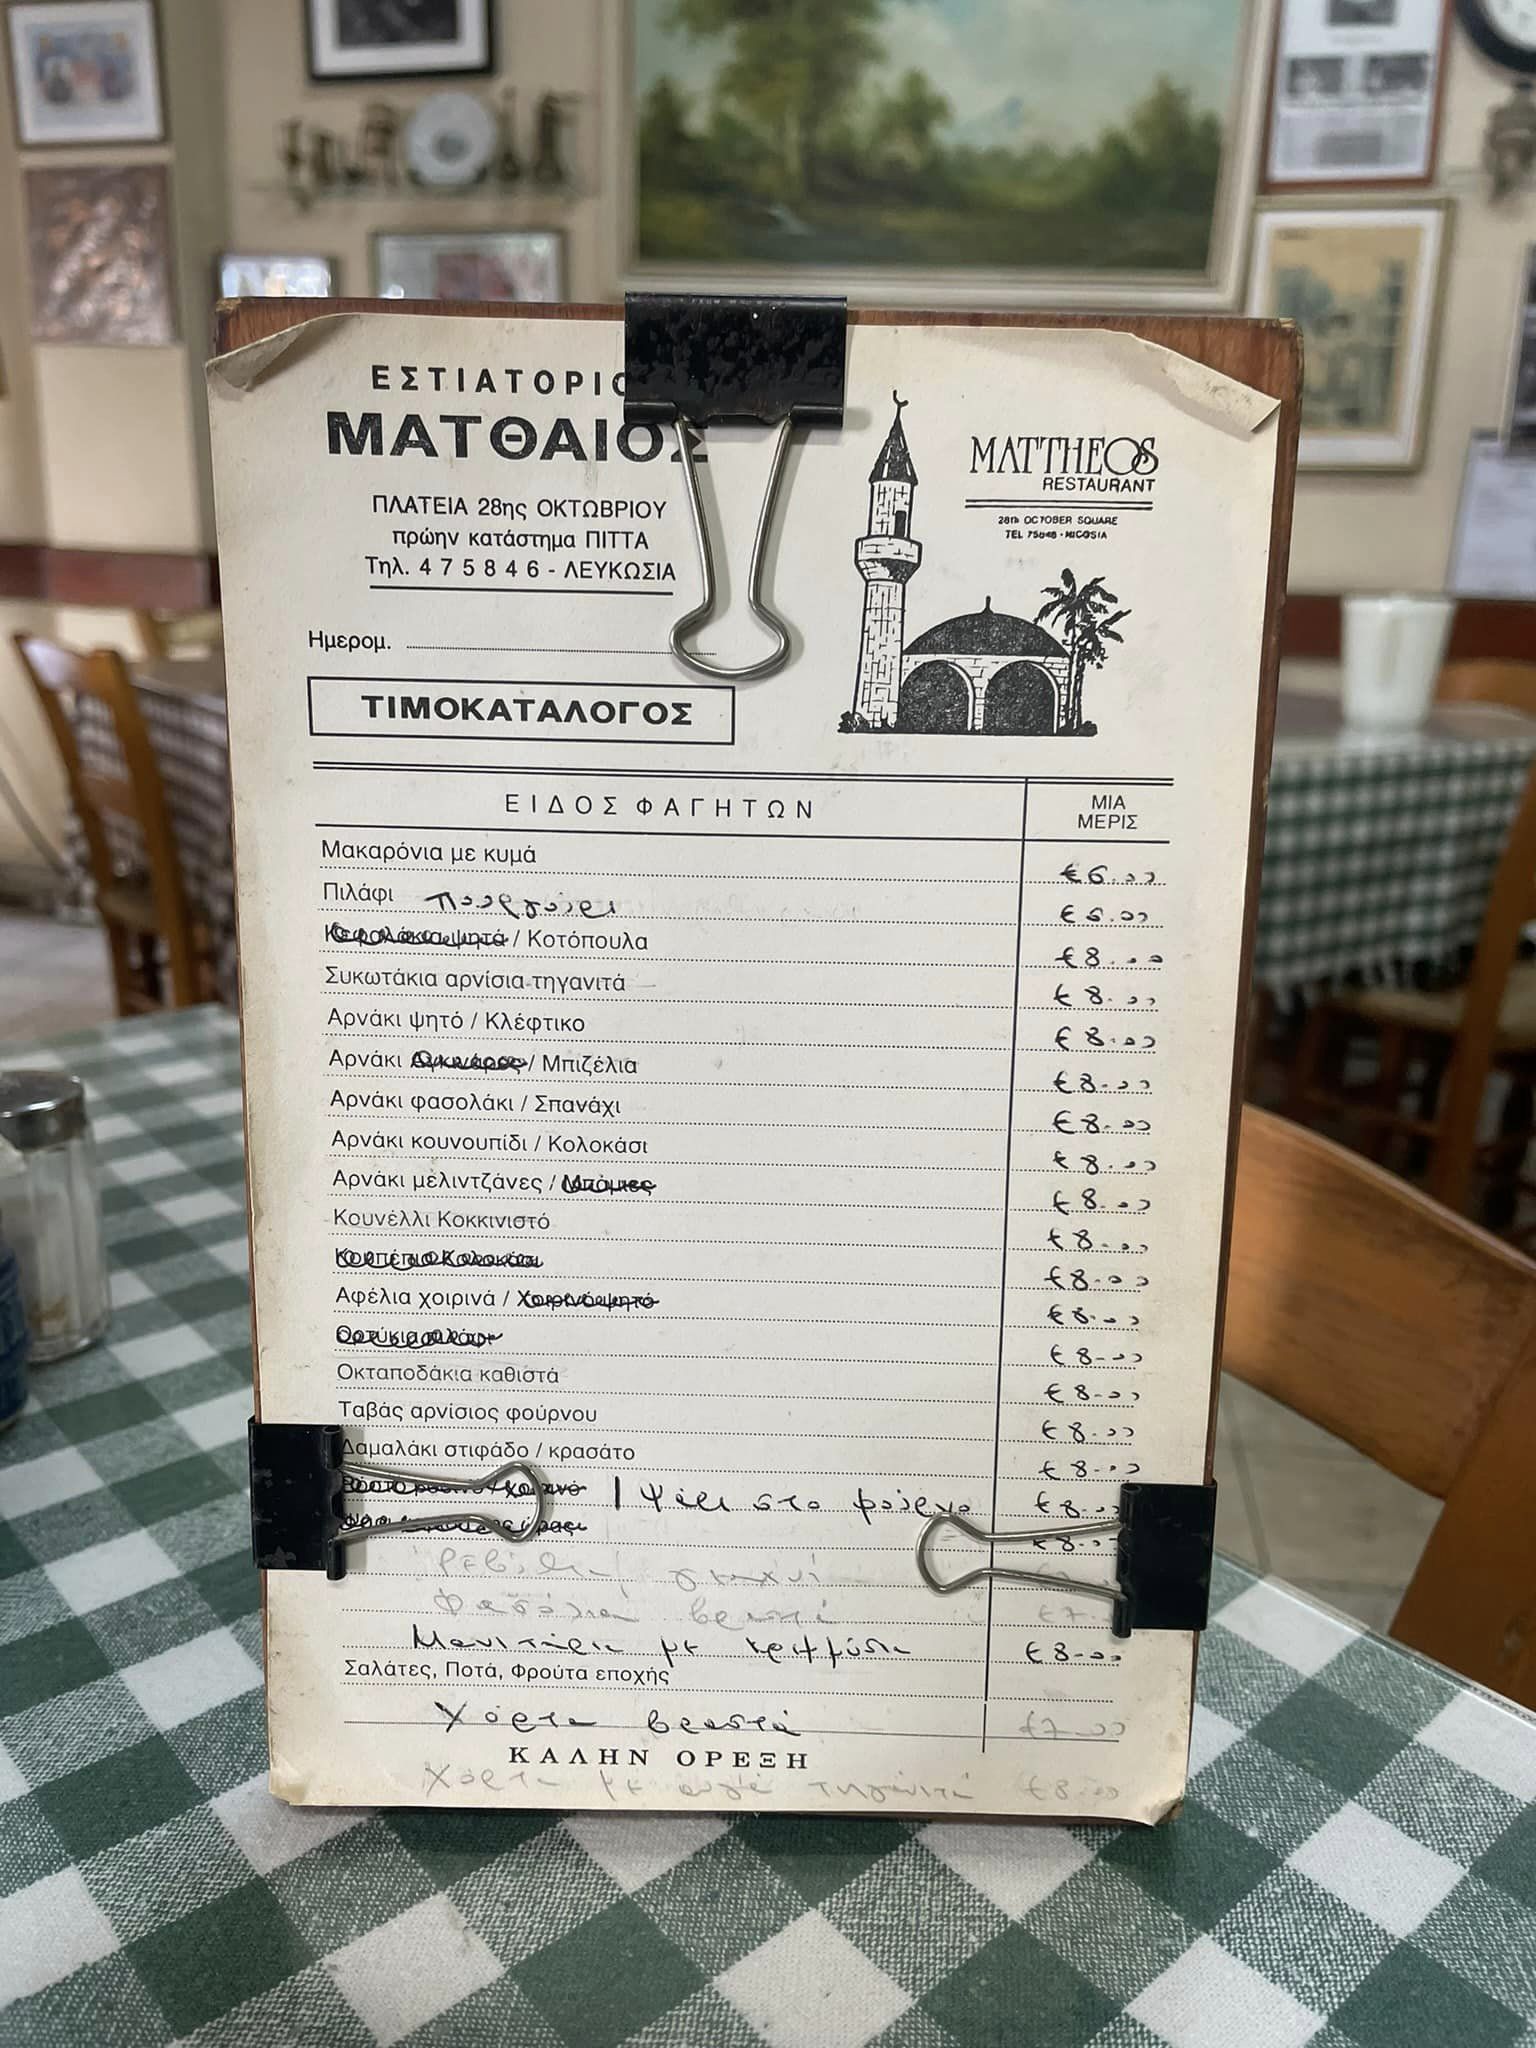 ΕΣΤΙΑΤΟΡΙΟ
ΜΑΤΘΑΙΟΣ
ΠΛΑΤΕΙΑ 28ης ΟΚΤΩΒΡΙΟΥ
πρώην κατάστημα ΠΙΤΤΑ
Τηλ. 475846 - ΛΕΥΚΩΣΙΑ
MATTHEOS
RESTAURANT
28th OCTOBER SQUARE
TEL 75846 - NICOSIA
Ημερομ.
ΤΙΜΟΚΑΤΑΛΟΓΟΣ
ΕΙΔΟΣ ΦΑΓΗΤΩΝ ΜΙΑ ΜΕΡΙΣ
Μακαρόνια με κυμά €6.00
Πιλάφι πουργούρι €6.00
Κεφαλάκια ψητά / Κοτόπουλα €8.00
Συκωτάκια αρνίσια τηγανιτά €8.00
Αρνάκι ψητό / Κλέφτικο €8.00
Αρνάκι Αγκινάρες / Μπιζέλια €8.00
Αρνάκι φασολάκι / Σπανάχι €8.00
Αρνάκι κουνουπίδι / Κολοκάσι €8.00
Αρνάκι μελιντζάνες / Μπάμιες €8.00
Κουνέλλι Κοκκινιστό €8.00
Κουπέπια Κολοκάσι €8.00
Αφέλια χοιρινά / Χοιρινό ψητό €8.00
Ορτύκια πιλάφι €8.00
Οκταποδάκια καθιστά €8.00
Ταβάς αρνίσιος φούρνου €8.00
Δαμαλάκι στιφάδο / κρασάτο €8.00
/ Ψάρι στο φούρνο €8.00
€8.00
Ρεβίθια / γιαχνί
Φασόλια βραστά €7.
Μανιτάρια με κρεμμύδια €8.00
Σαλάτες, Ποτά, Φρούτα εποχής
Χόρτα βραστά €7.00
ΚΑΛΗΝ ΟΡΕΞΗ
Χόρτα με αυγά τηγανιτά €8.00